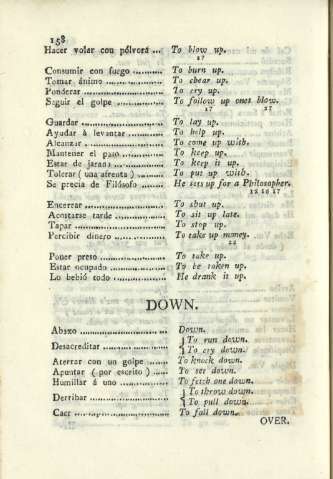 158
Hacer volar con pólvora ... To blow up.
17
Consumir con fuego ............ To burn up.
Tomar ánimo .................. To chear up.
Ponderar ........................ To cry up.
Seguir el golpe ............... To follow up ones blow.
17 17
Guardar ........................ To lay up.
Ayudar á levantar ............ To help up.
Alcanzar ........................ To come up with.
Mantener el paso ............ To keep up.
Estar de jarana ............... To keep it up.
Tolerar ( una afrenta ) ...... To put up with.
Se precia de Filósofo ...... He sets up for a Philosopher.
12 16 17
Encerrar ........................ To shut up.
Acostarse tarde ............... To sit up late.
Tapar ........................... To stop up.
Percibir dinero ............... To take up money.
22
Poner preso .................. To take up.
Estar ocupado ............... To be taken up.
Lo bebió todo ............... He drank it up.
DOWN.
Abaxo ........................ Down.
Desacreditar .................. { To run down.
To cry down.
Aterrar con un golpe ...... To knock down.
Apuntar ( por escrito ) ...... To set down.
Humillar á uno ............... To fetch one down.
Derribar ..................... { To throw down.
To pull down.
Caer ........................... To fall down.
OVER.